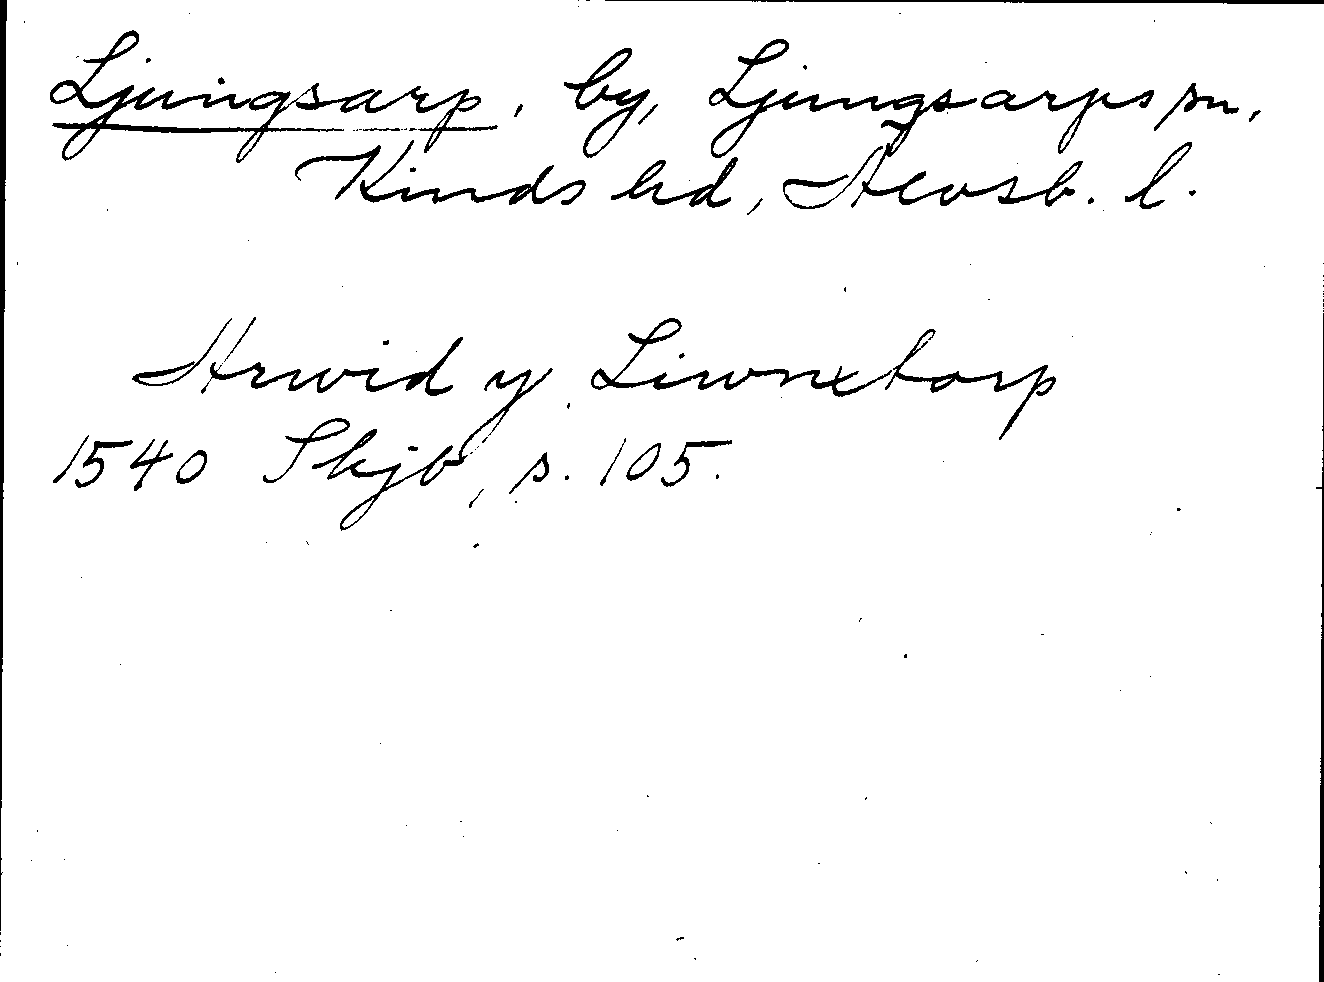 Ljungsarp, by, Ljungsarps sn,
Kinds hd, Älvsb. l.
Arwid y Liwnxtorp
1540 Skjb, s. 105.